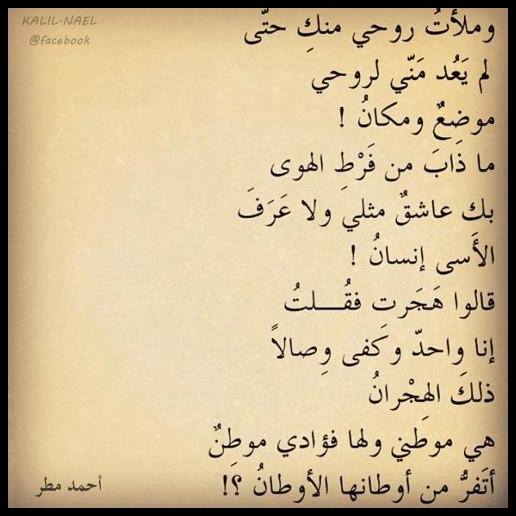 KALIL-NAEL
@facebook
وملأتُ روحي منكِ حتّى
لم يَعُد مَنّي لروحي
موضِعٌ ومكانُ !
ما ذابَ من فَرْطِ الهوى
بك عاشقٌ مثلي ولا عَرَفَ
الأَسى إنسانُ !
قالوا هَجَرتِ فقُـــلتُ
إنا واحدّ وكَفى وِصالاً
ذلكَ الهِجْرانُ
هي موطني ولها فؤادي موطِنٌ
أتَفرُّ من أوطانها الأوطانُ ؟!
أحمد مطر